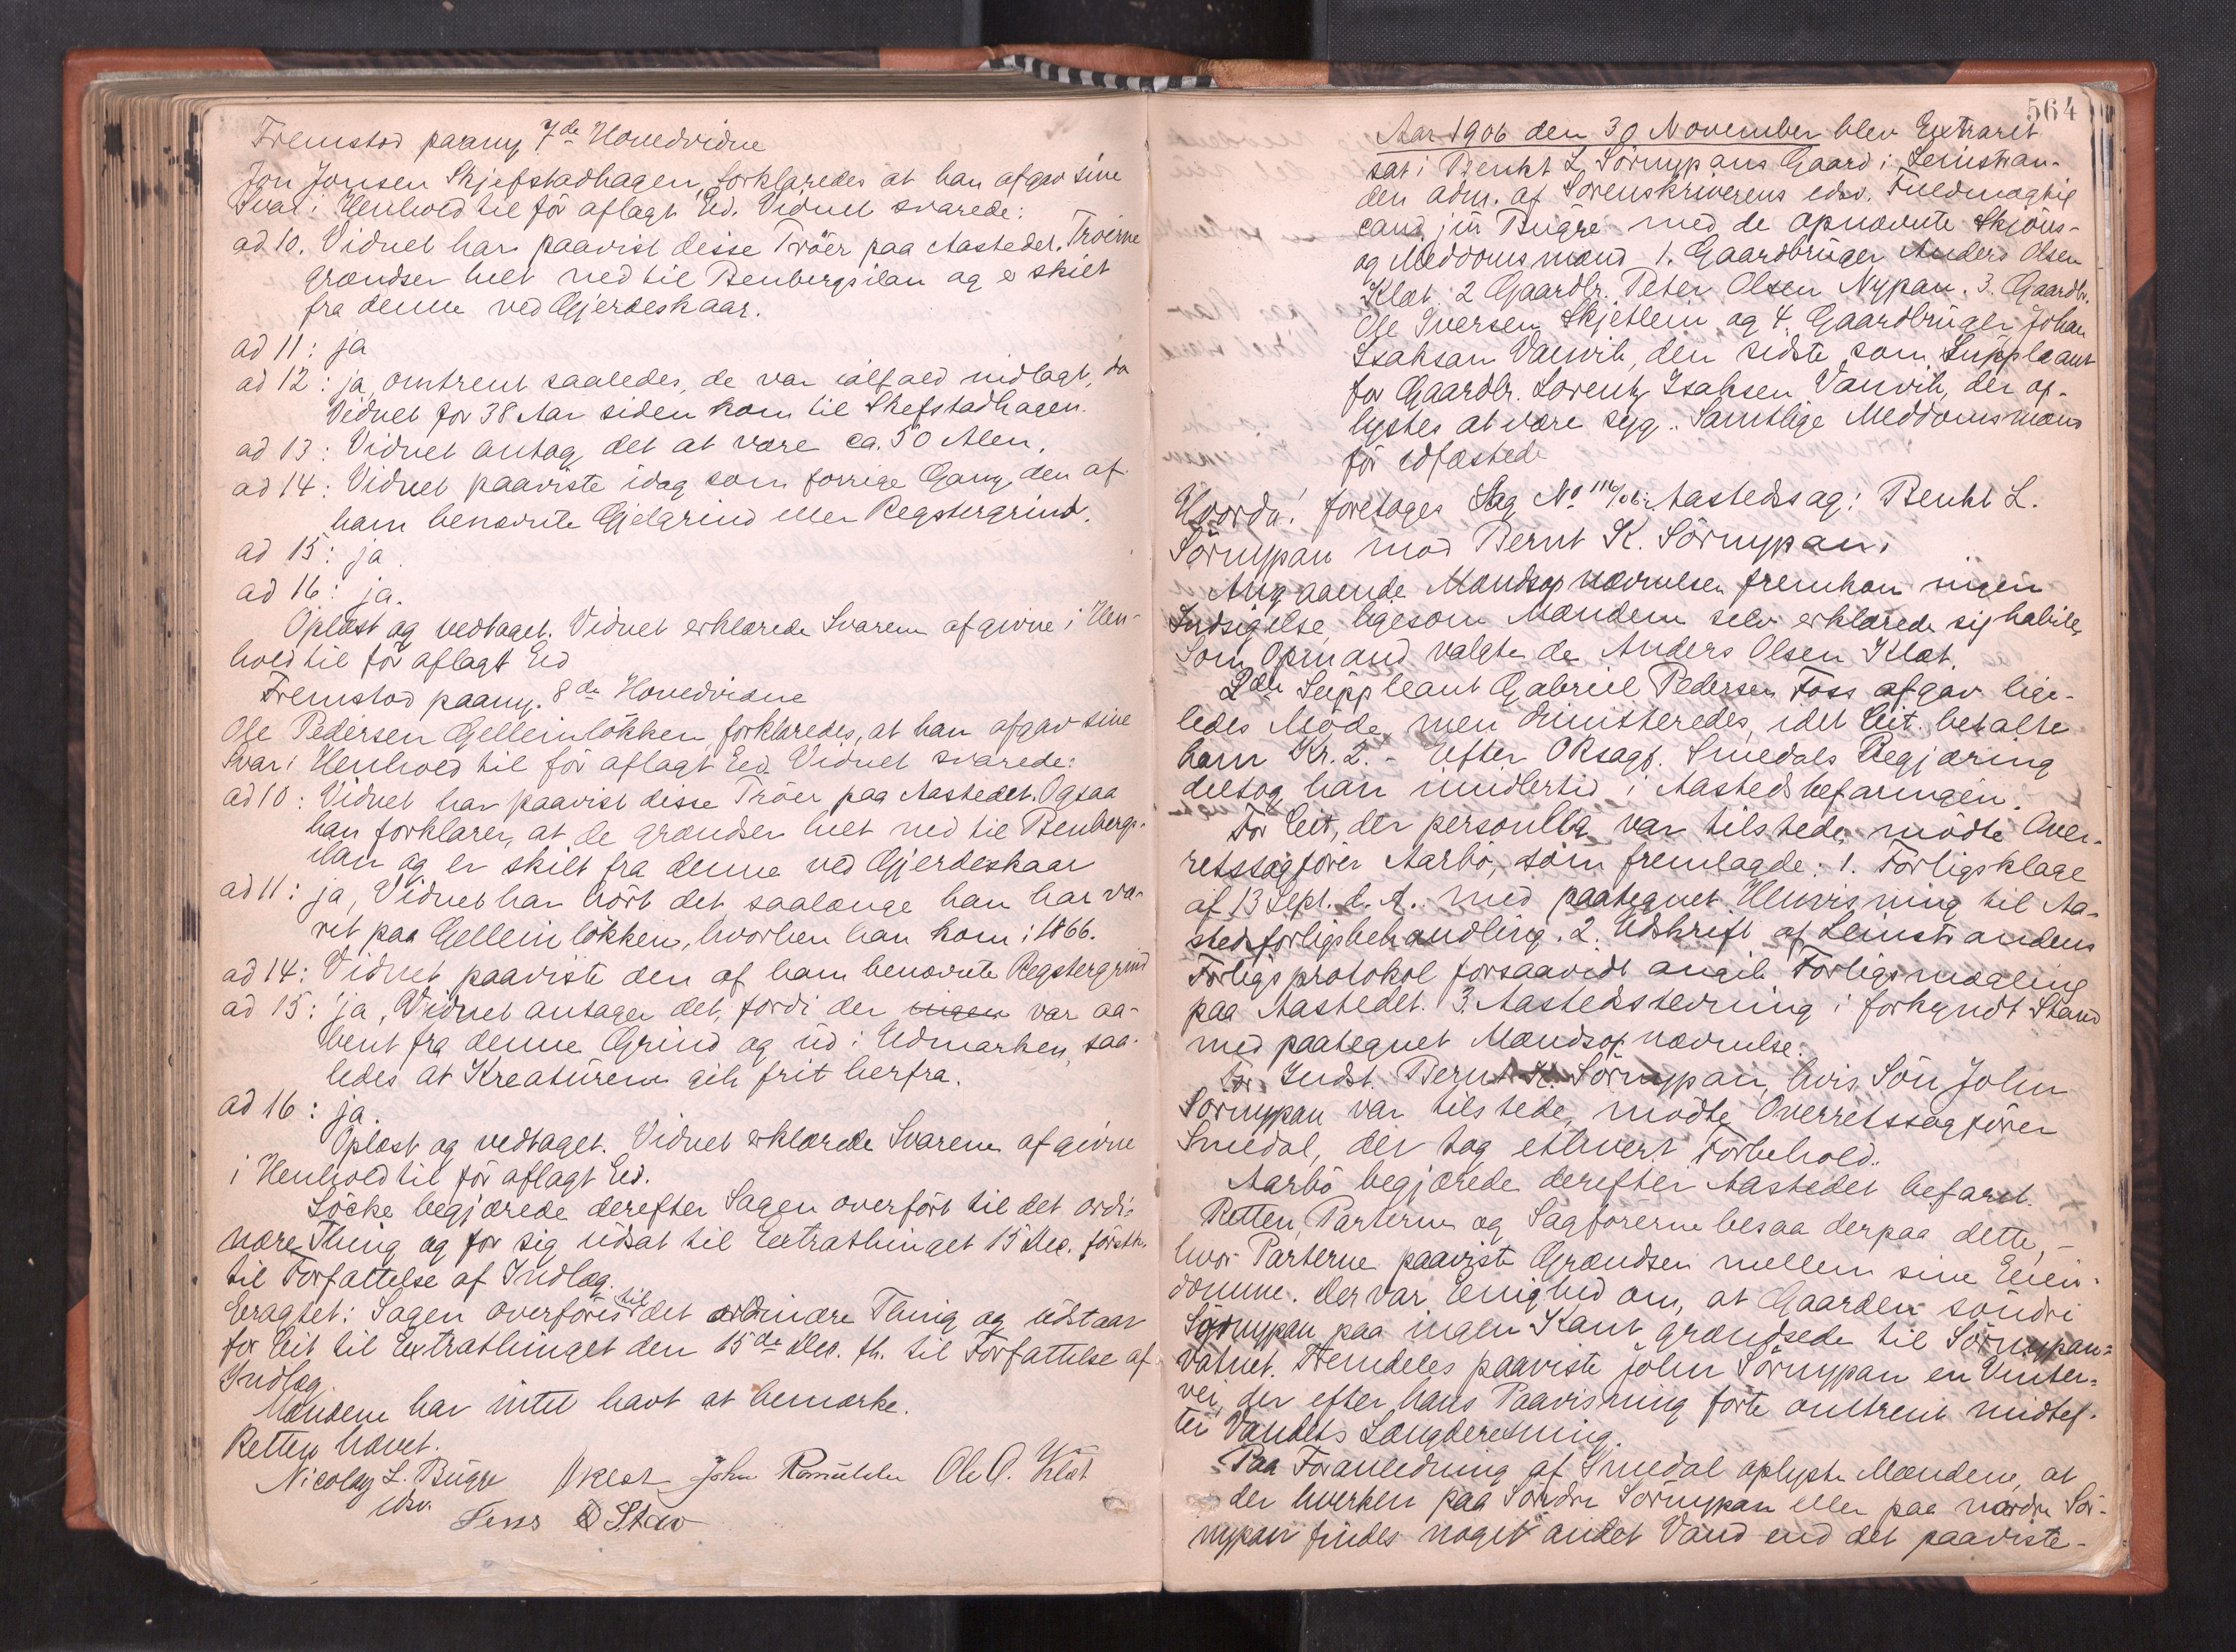 Fremstod paany 7de Hovedvidne
Jon Jonsen Skjefstadhagen, forklaredes at han afgav sine
Svar i Henhold til før aflagt Ed. Vidnet svarede:
ad 10. Vidnet har paavist disse Trøer paa Aastedet. Trøerne
grændser helt ned til Benbergsilan og er skilt
fra denne ved Gjerdeskaar.
ad 11: ja
ad 12: ja, omtrent saaledes, de var ialfald nidlagt, da
Vidnet for 38 Aar siden kom til Skefstadhagen.
ad 13: Vidnet antog det at være ca. 50 Alen.
ad 14: Vidnet paaviste idag som forrige Gang den af
ham benævnte Gjelgrind eller Regstergrind.
ad 15: ja.
ad 16: ja.
Oplæst og vedtaget. Vidnet erklærede Svarene afgivne i Hen-
hold til før aflagt Ed
Fremstod paany. 8de Hovedvidne
Ole Pedersen Gelleinløkken, forklaredes, at han afgav sine
Svar i Henhold til før aflagt Ed. Vidnet svarede:
ad 10: Vidnet har paavist disse Trøer paa Aastedet. Ogsaa
han forklarer, at de grændser helt ned til Benbergs-
ilan og er skilt fra denne ved Gjerdeskaar
ad 11: ja, Vidnet har hørt det saalænge han har væ-
ret paa Gelleinløkken, hvorhen han kom i 1866.
ad 14: Vidnet paaviste den af ham benævnte Regstergrind
ad 15: ja, Vidnet antager det, fordi der ingen var aa-
bent fra denne Grind og ud i Udmarken, saa-
ledes at Kreaturene gik frit herfra.
ad 16: ja.
Oplæst og vedtaget. Vidnet erklærede Svarene afgivne
i Henhold til før aflagt Ed.
Løcke begjærede derefter Sagen overført til det ordi-
nære Thing og for sig udsat til Extrathinget 15 Dec. førstk.
til Forfattelse af Indlæg.
Eragtet: Sagen overføres til det ordinære Thing og udstaar
for Cit til Extrathinget den 15de Dec. fk. til Forfattelse af
Indlæg.
Mændene har intet havt at bemærke.
Retten hævet.
Nicolay L. Bugge John Ole O. Klæt
edsv. Jens O Stav
564
Aar 1906 den 30 November blev Extraret
sat i Benkt L. Sørnypans Gaard i Leinstran-
den adm. af Sorenskriverens edsv. Fuldmægtig
cand. jur Bugge med de opnævnte Skjøns-
og Meddomsmænd 1. Gaardbruger Anders Olsen
Klæt. 2 Gaardbr. Peter Olsen Nypan. 3. Gaardbr.
Ole Iversen Skjetlein og 4. Gaardbruger Johan
Isaksen Vanvik, den sidste som Suppleant
for Gaardbr. Lorentz Isaksen Vanvik, der op-
lystes at være syg. Samtlige Meddomsmænd
før edfæstede
Hvorda! foretoges Sag No 116/06: Aastedssag: Benkt L.
Sørnypan mod Bernt K. Sørnypan.
Angaaende Mændsopnævnelsen fremkom ingen
Indsigelse, ligesom Mændene selv erklærede sig habile,
Som Opmand valgte de Anders Olsen Klæt.
2den Suppleant Gabriel Pedersen Foss afgav lige-
ledes Møde, men dimitteredes, idet Cit. betalte
ham Kr. 2.- Efter ORsagf. Smedals Begjæring
deltog han imidlertid i Aastedsbefaringen.
For Cit, der personlig var tilstede, mødte Over-
retssagfører Aarbø, som fremlagde: 1. Forligsklage
af 13 Sept. d. A. med paategnet Henvisning til Aa-
stedsforligsbehandling. 2. Udskrift af Leinstrandens
Forligsprotokol forsaavidt angik Forligsmægling
paa Aastedet. 3. Aastedsstevning i forkyndt Stand
med paategnet Mændsopnævnelse.
For Indst. Bernt K. Sørnypan, hvis Søn John
Sørnypan var tilstede, mødte Overretssagfører
Smedal, der tog ethvert Forbehold.
Aarbø begjærede derefter Aastedet befaret.
Retten, Parterne og Sagførerne besaa derpaa dette, -
hvor Parterne paaviste Grændsen mellem sine Eien-
domme. Der var Enighed om, at Gaarden søndre
Sørnypan paa ingen Kant grændsede til Sørnypan-
vatnet. Fremdeles paaviste John Sørnypan en Vinter-
vei, der efter hans Paavisning førte omtrent midtef-
ter Vandets Længderetning.
Paa Foranledning af Smedal oplyste Mændene, at
der hverken paa Søndre Sørnypan eller paa nordre Sør-
nypan findes noget andet Vand end det paaviste-